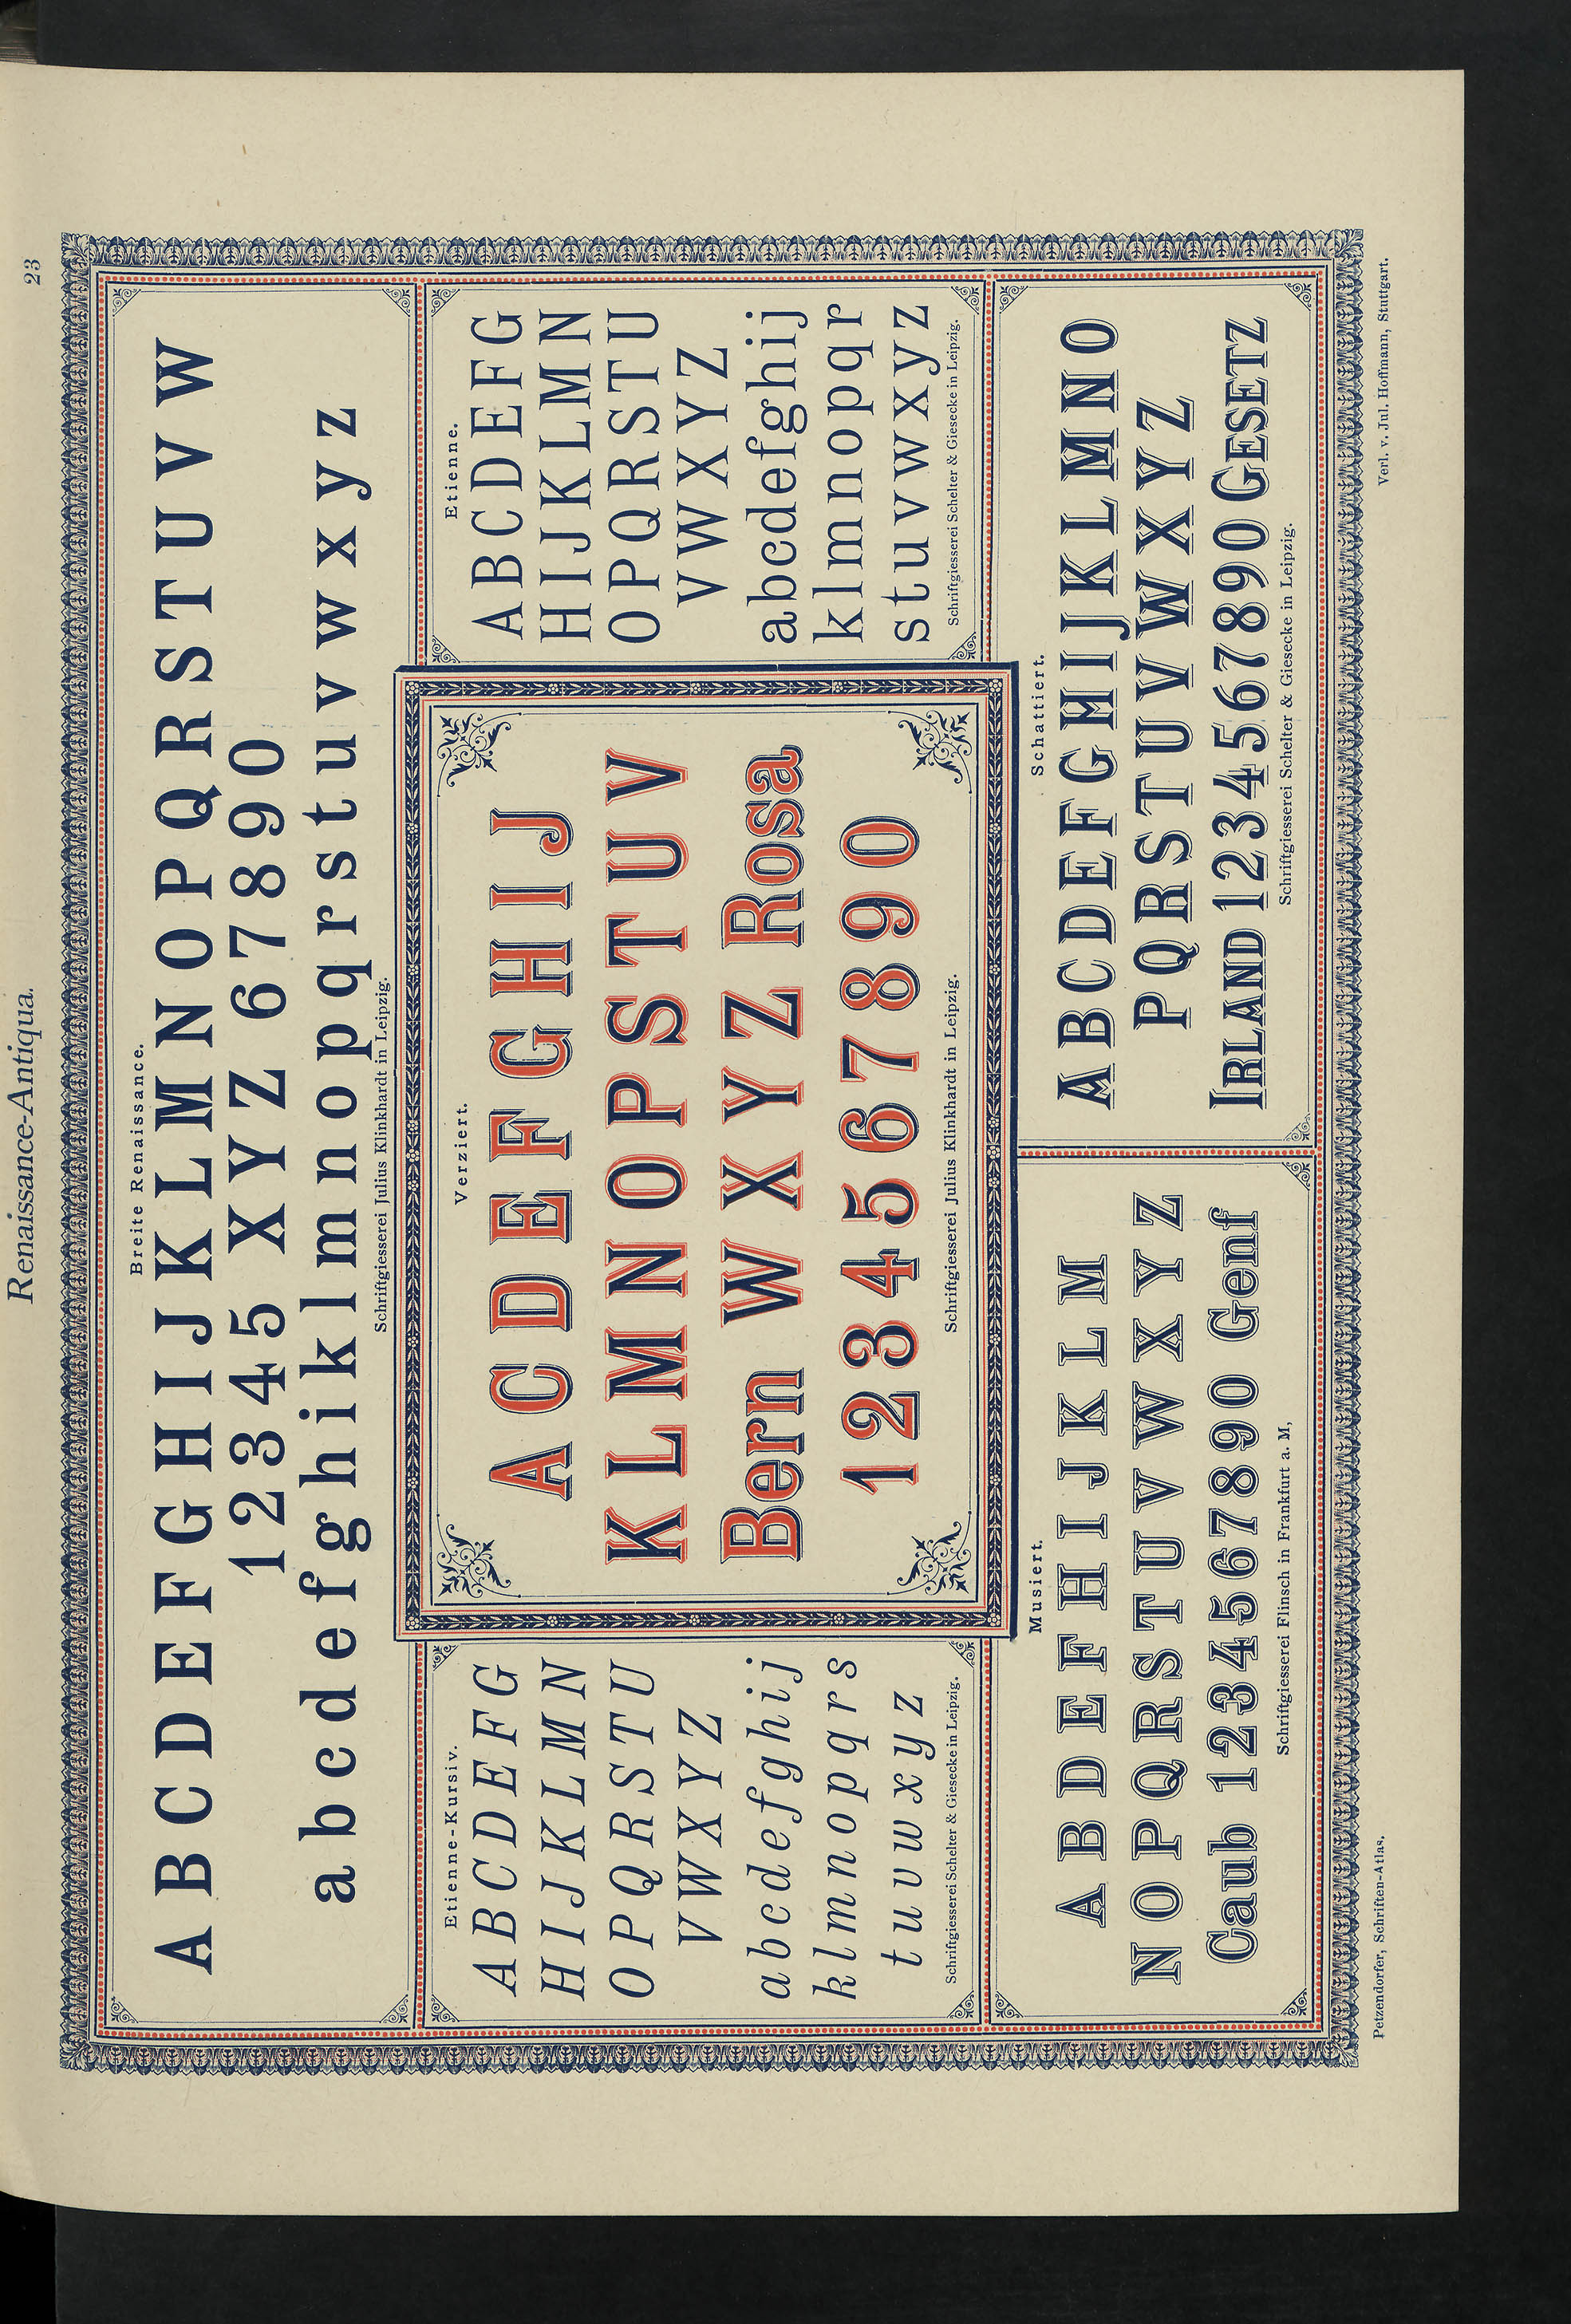 Renaissance-Antiqua.
23
Breite Renaissance.
A B C D E F G H I J K L M N O P Q R S T U V W
1 2 3 4 5 X Y Z 6 7 8 9 0
a b c d e f g h i k l m n o p q r s t u v w x y z
Schriftgiesserei Julius Klinkhardt in Leipzig.
Etienne-Kursiv.
A B C D E F G
H I J K L M N
O P Q R S T U
V W X Y Z
a b c d e f g h i j
k l m n o p q r s
t u v w x y z
Schriftgiesserei Schelter & Giesecke in Leipzig.
Verziert.
A C D E F G H I J
K L M N O P S T U V
Bern W X Y Z Rosa
1 2 3 4 5 6 7 8 9 0
Schriftgiesserei Julius Klinkhardt in Leipzig.
Etienne.
A B C D E F G
H I J K L M N
O P Q R S T U
V W X Y Z
a b c d e f g h i j
k l m n o p q r
s t u v w x y z
Schriftgiesserei Schelter & Giesecke in Leipzig.
Musiert.
A B D E F H I J K L M
N O P Q R S T U V W X Y Z
Caub 1234567890 Genf
Schriftgiesserei Flinsch in Frankfurt a. M,
Schattiert.
A B C D E F G H I J K L M N O
P Q R S T U V W X Y Z
IRLAND 1234567890 GESETZ
Schriftgiesserei Schelter & Giesecke in Leipzig.
Petzendorfer, Schriften-Atlas.
Verl. v. Jul. Hoffmann, Stuttgart.